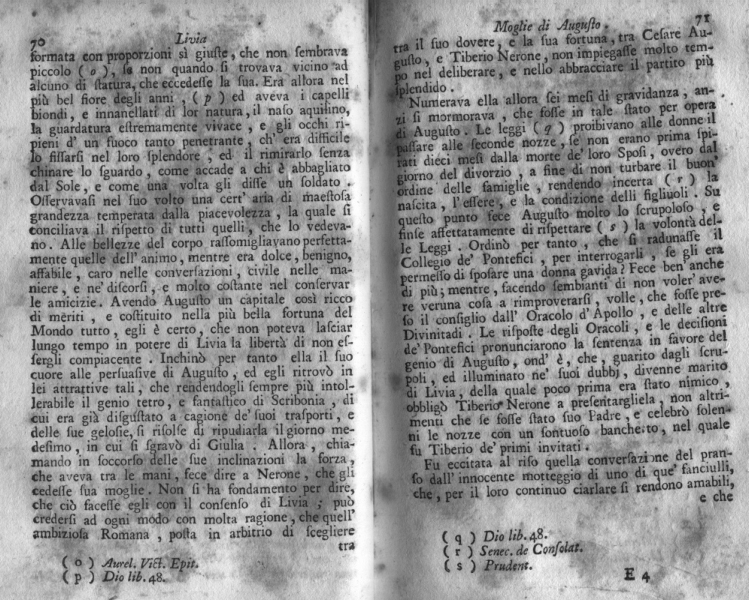 70 Livia
formata con proporzioni sì giuste, che non sembrava
piccolo (o), se non quando si trovava vicino ad
alcuno di statura, che eccedesse la sua. Era allora nel
più bel fiore degli anni, (p) ed aveva i capelli
biondi, e innanellati di lor natura, il naso aquilino,
la guardatura estremamente vivace, e gli occhi ri-
pieni d' un fuoco tanto penetrante, ch' era difficile
lo fissarsi nel loro splendore, ed il rimirarlo senza
chinare lo sguardo, come accade a chi è abbagliato
dal Sole, e come una volta gli disse un soldato.
Osservavasi nel suo volto una cert' aria di maestosa
grandezza temperata dalla piacevolezza, la quale si
conciliava il rispetto di tutti quelli, che lo vedeva-
no. Alle bellezze del corpo rassomigliavano perfetta-
mente quelle dell' animo, mentre era dolce, benigno,
affabile, caro nelle conversazioni, civile nelle ma-
niere, e ne' discorsi, e molto costante nel conservar
le amicizie. Avendo Augusto un capitale così ricco
di meriti, e costituito nella più bella fortuna del
Mondo tutto, egli è certo, che non poteva lasciar
lungo tempo in potere di Livia la libertà di non es-
sergli compiacente. Inchinò per tanto ella il suo
cuore alle persuasive di Augusto, ed egli ritrovò in
lei attrattive tali, che rendendogli sempre più intol-
lerabile il genio tetro, e fantastico di Scribonia, di
cui era già disgustato a cagione de' suoi trasporti, e
delle sue gelosie, si risolse di ripudiarla il giorno me-
desimo, in cui si sgravò di Giulia. Allora, chia-
mando in soccorso delle sue inclinazioni la forza,
che aveva tra le mani, fece dire a Nerone, che gli
cedesse sua moglie. Non si ha fondamento per dire,
che ciò facesse egli con il consenso di Livia; può
credersi ad ogni modo con molta ragione, che quell'
ambiziosa Romana, posta in arbitrio di scegliere
tra
(o) Aurel. Vict. Epit.
(p) Dio lib. 48.
Moglie di Augusto. 71
tra il suo dovere, e la sua fortuna, tra Cesare Au-
gusto, e Tiberio Nerone, non impiegasse molto tem-
po nel deliberare, e nello abbracciare il partito più
splendido.
Numerava ella allora sei mesi di gravidanza, an-
zi si mormorava, che fosse in tale stato per opera
di Augusto. Le leggi (q) proibivano alle donne il
passare alle seconde nozze, se non erano prima spi-
rati dieci mesi dalla morte de' loro Sposi, overo dal
giorno del divorzio, a fine di non turbare il buon'
ordine delle famiglie, rendendo incerta (r) la
nascita, l' essere, e la condizione delli figliuoli. Su
questo punto fece Augusto molto lo scrupoloso, e
finse affettatamente di rispettare (s) la volontà del-
le Leggi. Ordinò per tanto, che si radunasse il
Collegio de' Pontefici, per interrogarli, se gli era
permesso di sposare una donna gavida? Fece ben' anche
di più; mentre, facendo sembianti di non voler' ave-
re veruna cosa a rimproverarsi, volle, che fosse pre-
so il consiglio dall' Oracolo d' Apollo, e delle altre
Divinitadi. Le risposte degli Oracoli, e le decisioni
de' Pontefici pronunciarono la sentenza in favore del
genio di Augusto, ond' è, che, guarito dagli scru-
poli, ed illuminato ne' suoi dubbj, divenne marito
di Livia, della quale poco prima era stato nimico,
obbligò Tiberio Nerone a presentargliela, non altri-
menti che se fosse stato suo Padre, e celebrò solen-
ni le nozze con un sontuoso banchetto, nel quale
fu Tiberio de' primi invitati.
Fu eccitata al riso quella conversazione del pran-
so dall' innocente motteggio di uno di que' fanciulli,
che, per il loro continuo ciarlare si rendono amabili,
e che
(q) Dio lib. 48.
(r) Senec. de Consolat.
(s) Prudent.
E 4